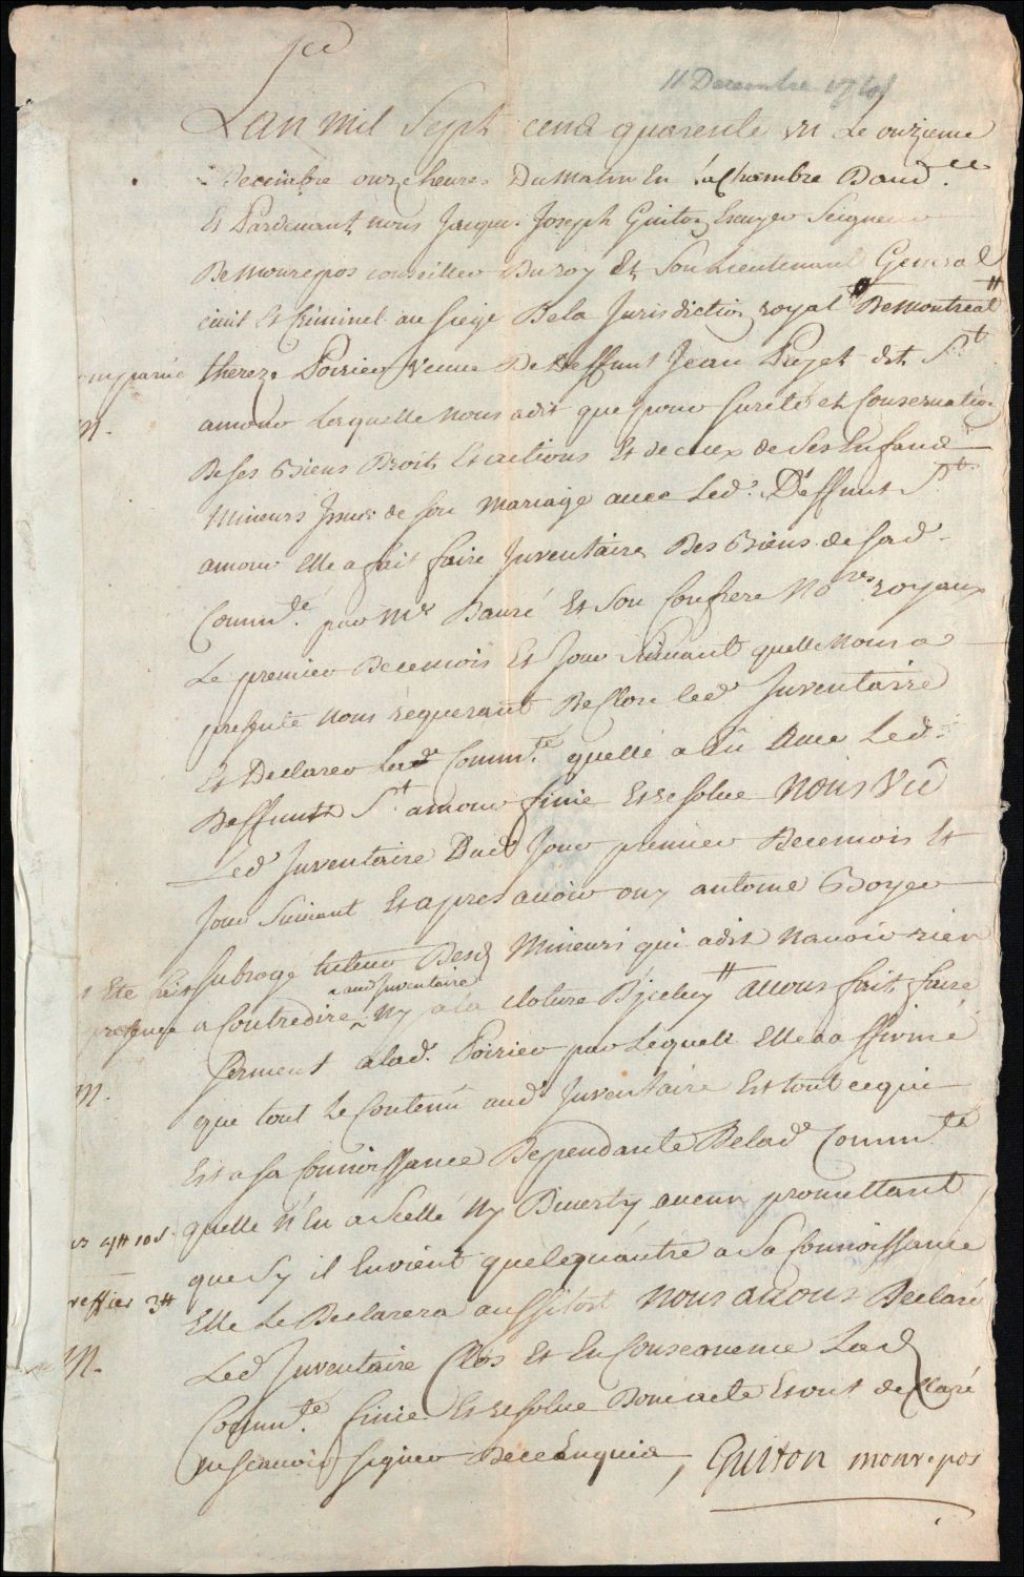 11 Decembre 1741
Lan mil Sept cent quarente un Le onzieme
Decembre onze heures Dumatin En la Chambre Daud.ce
Et Pardevant nous Jacque Joseph Guiton Escuyer Seigneur
De monrepos conseiller Du roy Et Son Lieutenant General
civil Et Criminel au Siege De la Jurisdiction royal # De Montreal #
therez Poirier veuve De deffunt Jean Paget dit St
amour laquelle nous a dit que pour sureté et Conservation
De ses Biens Droits Et actions Et de ceux de ses Enfans
Mineurs Jssus de son Mariage avec Led. Deffunt St
amour Elle a fait faire Juventaire Des Biens de Sad.
Comm.té par Me Et Son Confrere No.res royaux
Le premier De ce mois Et Jour Suivant quelle nous a
presenté nous requerant De Clore led Inventaire
Et Declarer Lad Comm.té quelle a Eu Avec Led.
Deffunt St amour finie Et resolue Nous Vû
Led Inventaire Dud Jour premier De ce mois Et
Jour Suivant Et apres avoir ouy antoine Boyer
Subrogé tuteur Desd Mineurs qui a dit Navoir rien
aud Inventaire
a Contredire Ny a la cloture Djceluy # avons fait faire
Serment a lad. Poirier par Lequell Elle a affirmé
que tout Le Contenû aud Inventaire Est tout ce qui
Est a sa Connoissance Dependante De lad Comm.té
quelle N'En a Scellé Ny Diverty aucun promettant
que Sy il Envient quelequautre a Sa Connoissance
Elle Le Declarera aussitost Nous avons Declaré
Led Inventaire Clos Et En Consequence Lad
Comm.té finie Et resolue Dont acte Et ont declaré
ne scavoir signer De ce Enquis, Guiton monrepos
M.
M.
greffier 3#
M.